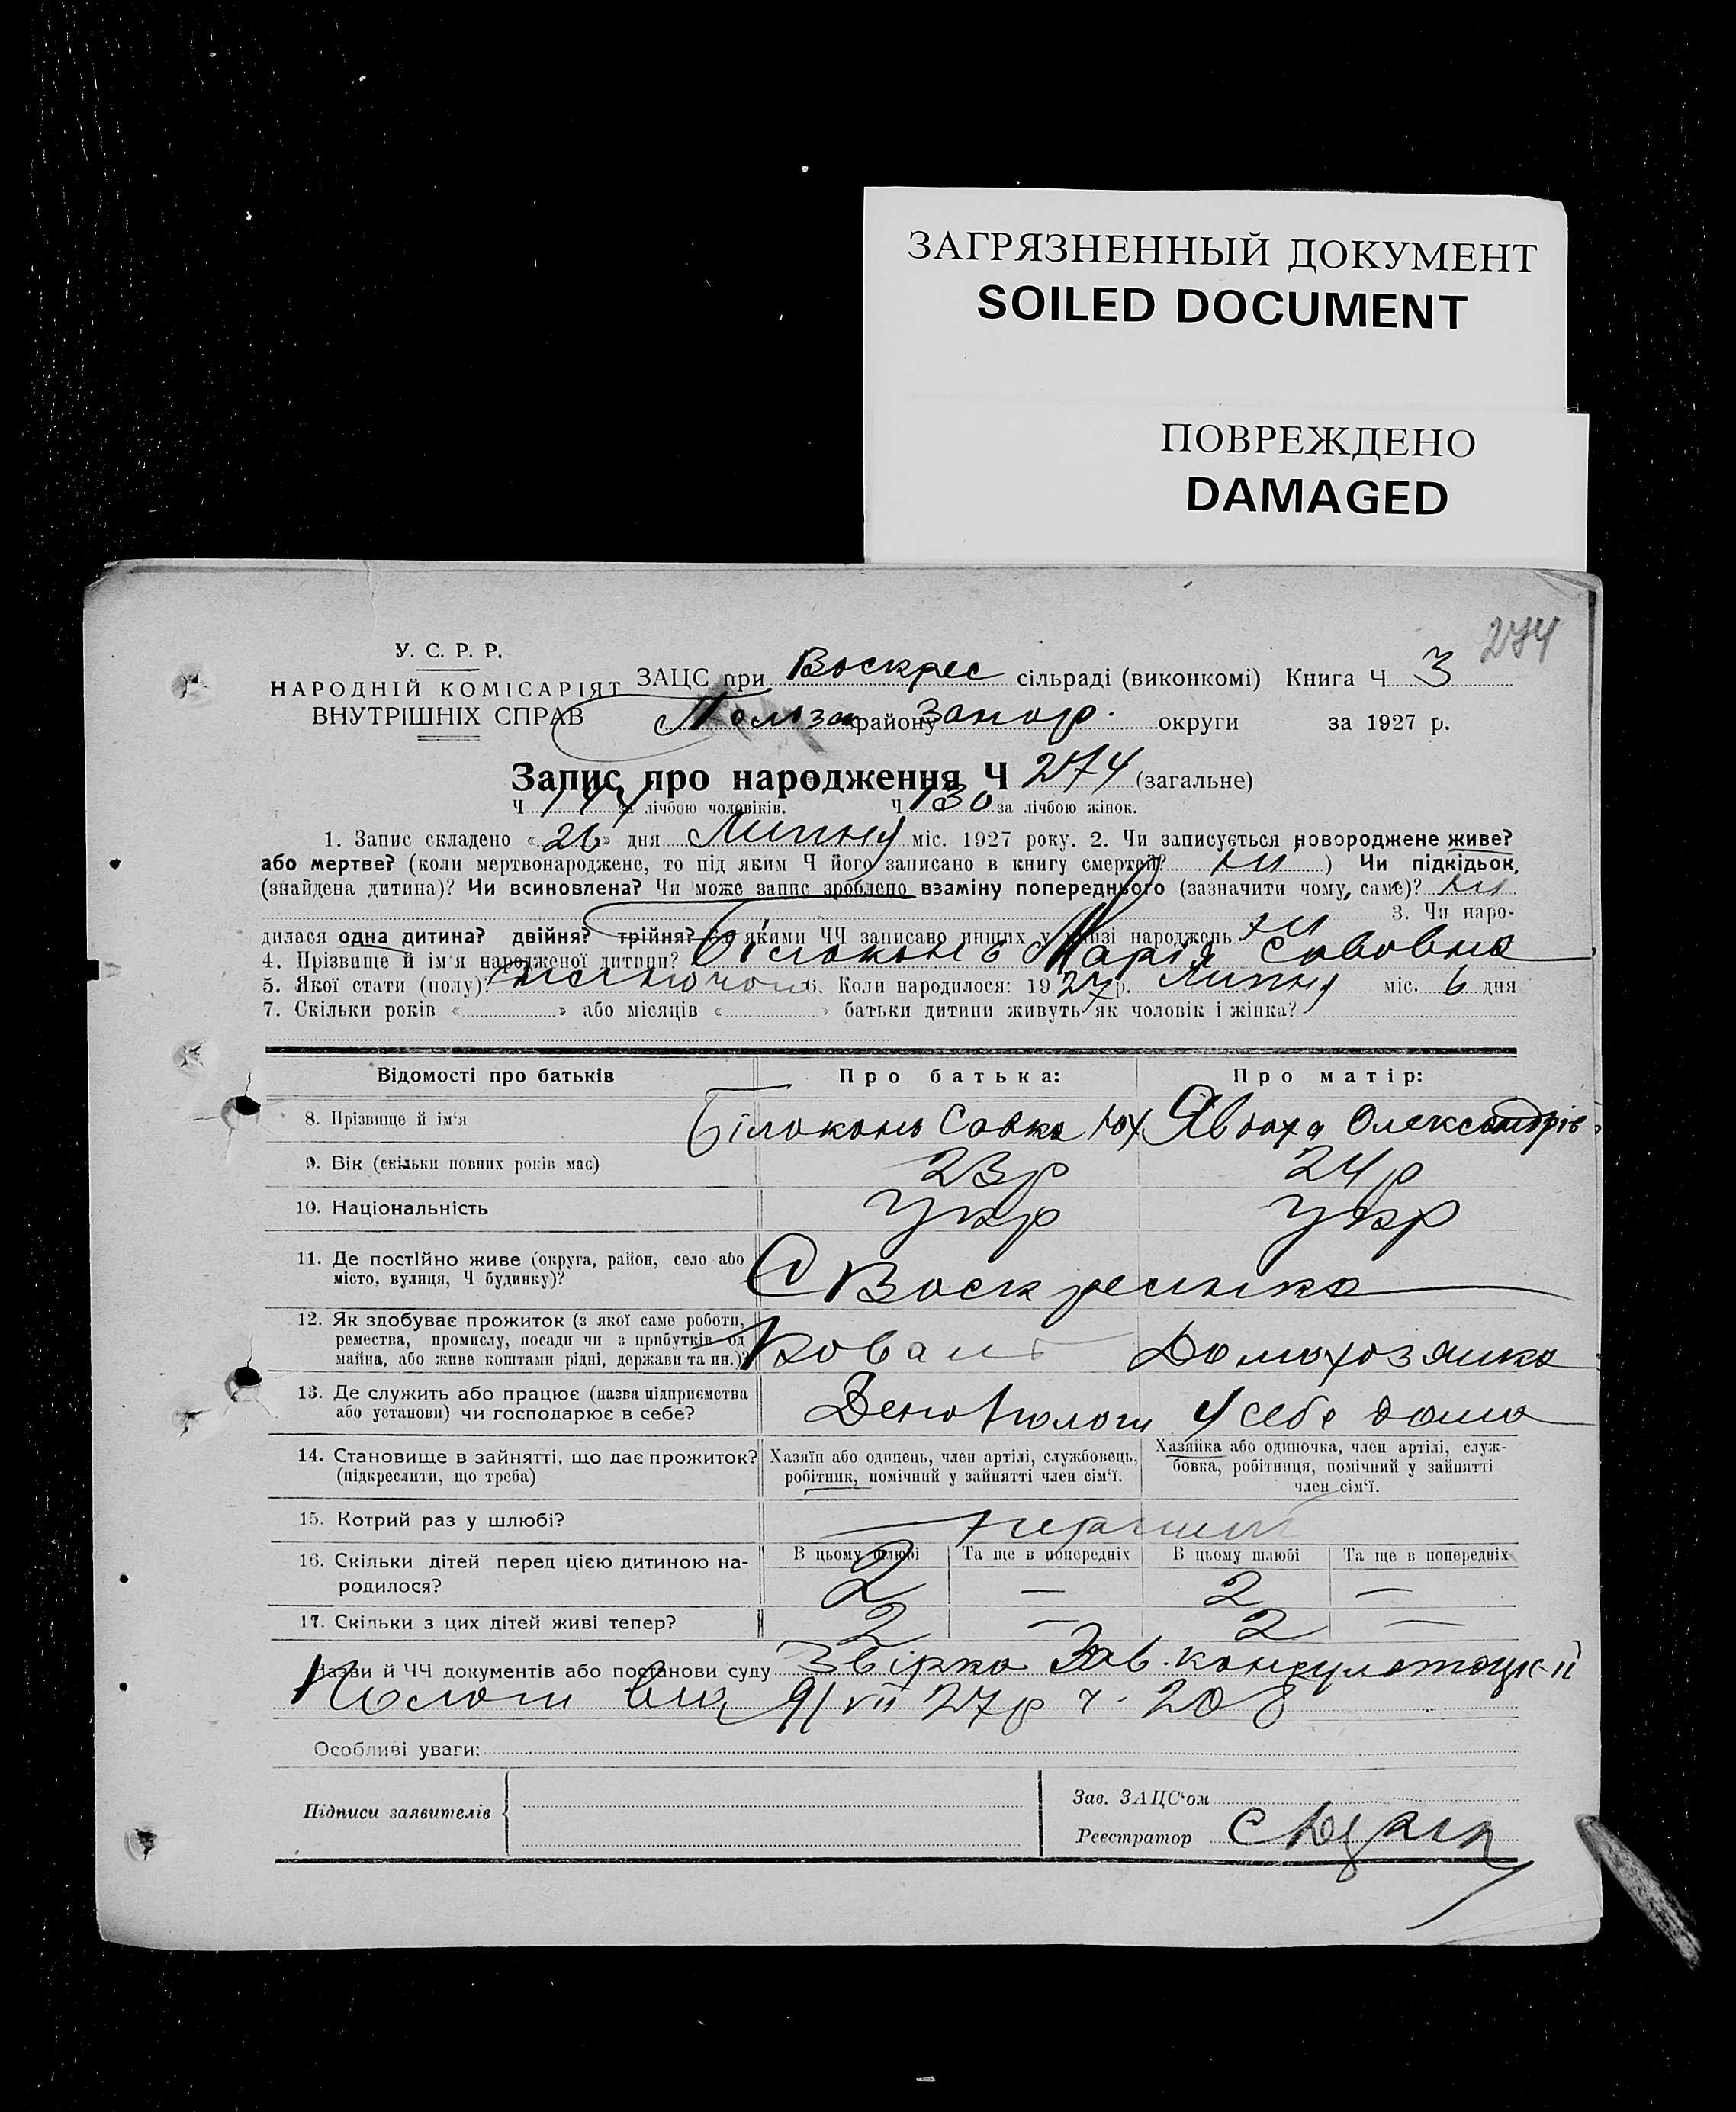 ЗАГРЯЗНЕННЫЙ ДОКУМЕНТ
SOILED DOCUMENT
ПОВРЕЖДЕНО
DAMAGED
274
У. С. Р. Р.
НАРОДНІЙ КОМІСАРІЯТ
ВНУТРІШНІХ СПРАВ
ЗАЦС при Воскрес сільраді (виконкомі) Книга Ч 3
району Запор. округи за 1927 р.
Запис про народження Ч 274 (загальне)
Ч 144 за лічбою чоловіків. Ч 130 за лічбою жінок.
1. Запис складено «26» дня Липня міс. 1927 року. 2. Чи записується новороджене живе?
або мертве? (коли мертвонароджене, то під яким Ч його записано в книгу смертей? ні) Чи підкідьок,
(знайдена дитина)? Чи всиновлена? Чи може запис зроблено взаміну попереднього (зазначити чому, саме)? ні
3. Чи наро-
дилася одна дитина? двійня? трійня? За якими ЧЧ записано инших у книзі народжень ні
4. Прізвище й ім'я народженої дитини? Білоконь Марія Савовна
5. Якої стати (полу)? 6. Коли народилося: 1927 р. Липня міс. 6 дня
7. Скільки років « » або місяців « » батьки дитини живуть як чоловік і жінка?
Відомості про батьків Про батька: Про матір:
8. Прізвище й ім'я Білоконь Савка Юх Явдоха Олександрів
9. Вік (скільки повних років має) 23р 24р
10. Національність Укр Укр
11. Де постійно живе (округа, район, село або
місто, вулиця, Ч будинку)? С Воскресенка
12. Як здобуває прожиток (з якої саме роботи,
ремества, промислу, посади чи з прибутків од
майна, або живе коштами рідні, держави та ин.)? Коваль Домохозяйка
13. Де служить або працює (назва підприємства
або установи) чи господарює в себе? Депо Пологи У себе дома
14. Становище в зайнятті, що дає прожиток?
(підкреслити, що треба)
Хазяїн або одинець, член артілі, службовець,
робітник, помічний у зайнятті член сім'ї.
Хазяйка або одиночка, член артілі, служ-
бовка, робітниця, помічний у зайнятті
член сім'ї.
15. Котрий раз у шлюбі? перший
В цьому шлюбі Та ще в попередніх В цьому шлюбі Та ще в попередніх
16. Скільки дітей перед цією дитиною на-
родилося? 2 — 2 —
17. Скільки з цих дітей живі тепер? 2 — 2 —
Назви й ЧЧ документів або постанови суду Збірка Зав. консультацій
Пологи від 9/VII 27р ч. 208
Особливі уваги:
Підписи заявителів
Зав. ЗАЦС'ом
Реєстратор